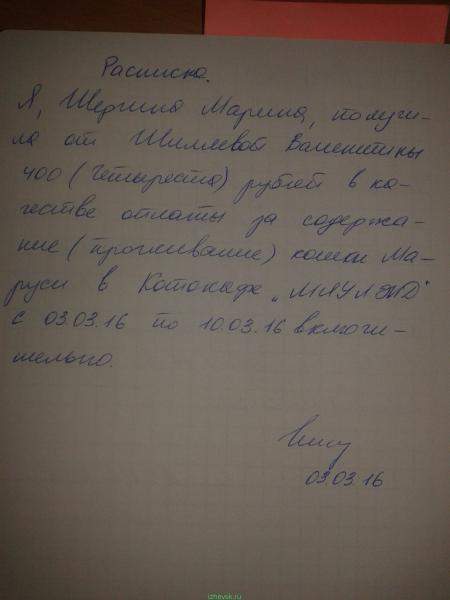 Расписка.
Я, Шергина Марина, получи-
ла от Шиляевой Валентины
400 (Четыреста) рублей в ка-
честве оплаты за содержа-
ние (проживание) кошки Ма-
руси в Котокафе „МЯУЛЭНД"
с 03.03.16 по 10.03.16 включи-
тельно.
03.03.16
izhevsk.ru